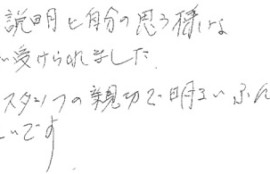 説明と自分の思う様な
い受けられました。
スタッフの親切で明るいふん
いです